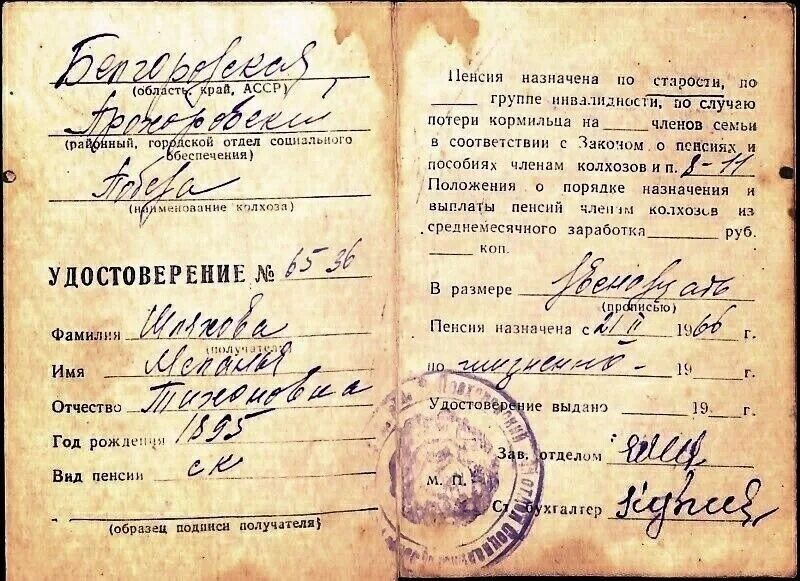 Белгородская
(область, край, АССР)
Прохоровский
(районный, городской отдел социального
обеспечения)
Победа
(наименование колхоза)
УДОСТОВЕРЕНИЕ № 6536
Фамилия Шляхова
(получателя)
Имя Мелания
Отчество Тихоновна
Год рождения 1895
Вид пенсии ск
(образец подписи получателя)
Пенсия назначена по старости, по
____ группе инвалидности, по случаю
потери кормильца на ____ членов семьи
в соответствии с Законом о пенсиях и
пособиях членам колхозов и п. 8-11
Положения о порядке назначения и
выплаты пенсий членам колхозов из
среднемесячного заработка ____ руб.
____ коп.
В размере двенадцать
(прописью)
Пенсия назначена с 21 II 1966 г.
по жизненно - 19__ г.
Удостоверение выдано ____ 19__ г.
Зав. отделом
М. П.
Ст. бухгалтер